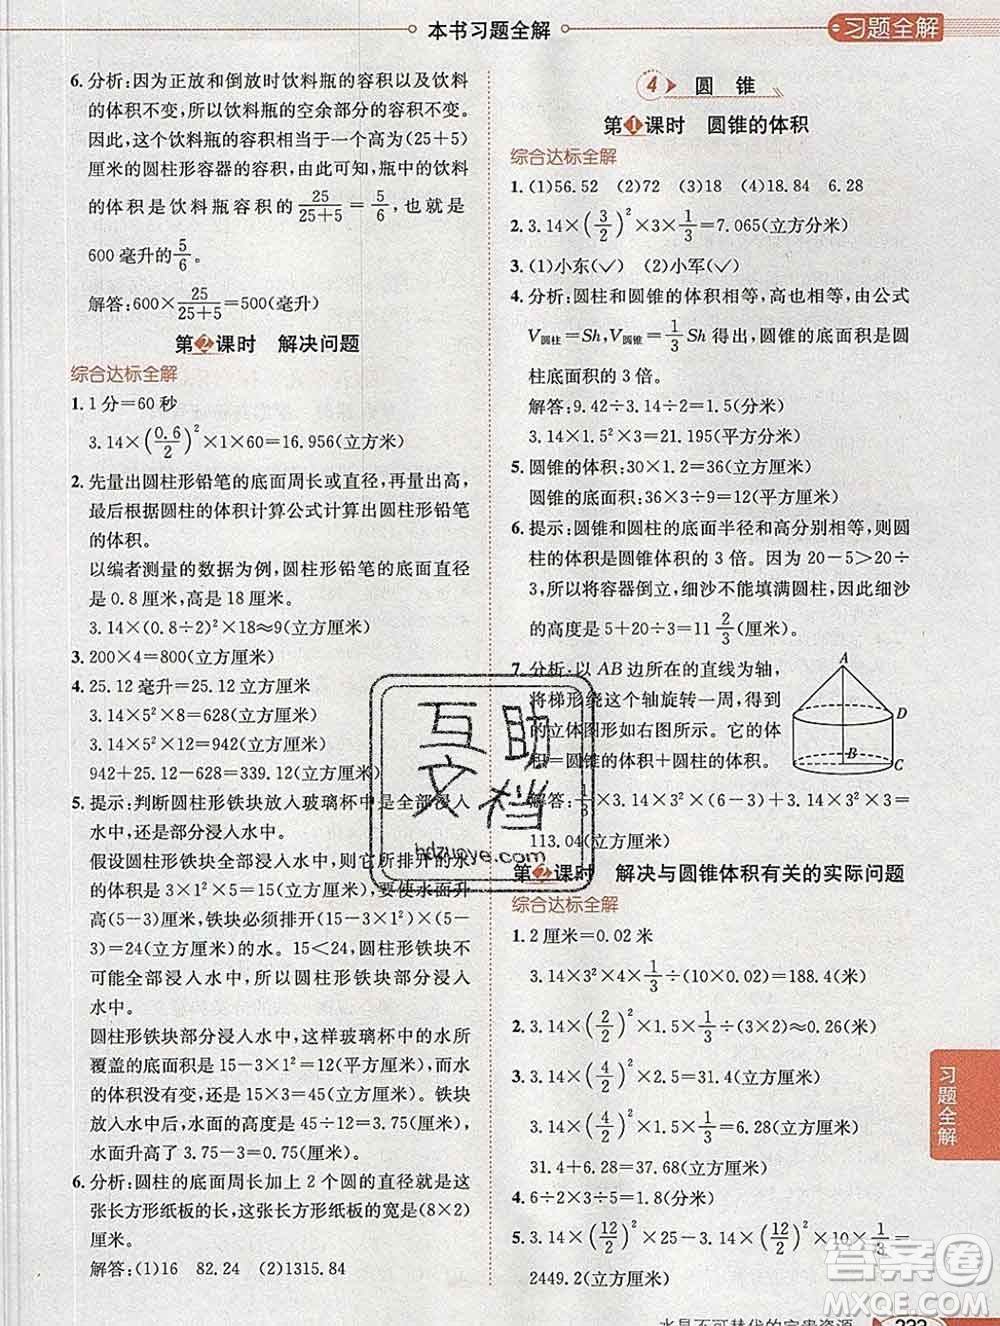 本书习题全解
习题全解
6. 分析:因为正放和倒放时饮料瓶的容积以及饮料
的体积不变,所以饮料瓶的空余部分的容积不变。
因此,这个饮料瓶的容积相当于一个高为(25+5)
厘米的圆柱形容器的容积,由此可知,瓶中的饮料
的体积是饮料瓶容积的25/(25+5)=5/6,也就是
600毫升的5/6。
解答:600×25/(25+5)=500(毫升)
第2课时 解决问题
综合达标全解
1. 1分=60秒
3.14×(0.6/2)²×1×60=16.956(立方米)
2. 先量出圆柱形铅笔的底面周长或直径,再量高,
最后根据圆柱的体积计算公式计算出圆柱形铅笔
的体积。
以编者测量的数据为例,圆柱形铅笔的底面直径
是0.8厘米,高是18厘米。
3.14×(0.8÷2)²×18≈9(立方厘米)
3. 200×4=800(立方厘米)
4. 25.12毫升=25.12立方厘米
3.14×5²×8=628(立方厘米)
3.14×5²×12=942(立方厘米)
942+25.12-628=339.12(立方厘米)
5. 提示:判断圆柱形铁块放入玻璃杯中是全部浸入
水中,还是部分浸入水中。
假设圆柱形铁块全部浸入水中,则它所排开的水
的体积是15×1=15(立方厘米),要使水面升高
(5-3)厘米,铁块必须排开(15-3×1²)×(5-
3)=24(立方厘米)的水。15<24,圆柱形铁块不
可能全部浸入水中,所以圆柱形铁块是部分浸入
水中。
圆柱形铁块部分浸入水中,这样玻璃杯中的水所
覆盖的底面积是15-3×1²=12(平方厘米),水的
体积没有变化,是15×3=45(立方厘米)。铁块
放入水中后,水面的高度是45÷12=3.75(厘米),
水面升高了3.75-3=0.75(厘米)。
6. 分析:圆柱的底面周长加上2个圆的直径就是这
张长方形纸板的长,这张长方形纸板的宽是(8×2)
厘米。
解答:(1)16 82.24 (2)1315.84
4 圆 锥
第1课时 圆锥的体积
综合达标全解
1. (1)56.52 (2)72 (3)18 (4)18.84 6.28
2. 3.14×(3/2)²×3×1/3=7.065(立方分米)
3. (1)小东(✓) (2)小军(✓)
4. 分析:圆柱和圆锥的体积相等,高也相等,由公式
V圆柱=Sh,V圆锥=1/3Sh得出,圆锥的底面积是圆
柱底面积的3倍。
解答:9.42÷3.14÷2=1.5(分米)
3.14×1.5²×3=21.195(平方分米)
5. 圆锥的体积:30×1.2=36(立方厘米)
圆锥的底面积:36×3÷9=12(平方厘米)
6. 提示:圆锥和圆柱的底面半径和高分别相等,则圆
柱的体积是圆锥体积的3倍。因为20-5>20÷
3,所以将容器倒立,细沙不能填满圆柱,所以细沙
的高度是5+20÷3=11 2/3(厘米)。
7. 分析:以AB边所在的直线为轴,
将梯形绕这个轴旋转一周,得到
的立体图形如右图所示。它的体
积=圆锥的体积+圆柱的体积。
A
D
B
C
解答:1/3×3.14×3²×(6-3)+3.14×3²×3=
113.04(立方厘米)
第2课时 解决与圆锥体积有关的实际问题
综合达标全解
1. 2厘米=0.02米
3.14×3²×4×1/3÷(10×0.02)=188.4(米)
2. 3.14×(2/2)²×1.5×1/3÷(3×2)≈0.26(米)
3. 3.14×(4/2)²×2.5=31.4(立方厘米)
3.14×(4/2)²×1.5×1/3=6.28(立方厘米)
31.4+6.28=37.68(立方厘米)
4. 6÷2×3÷5=1.8(分米)
5. 3.14×(12/2)²×25-3.14×(12/2)²×10×1/3=
2449.2(立方厘米)
习题全解
水是不可替代的宝贵资源
互助
文档
hdzuoye.com
答案圈
MXQE.COM